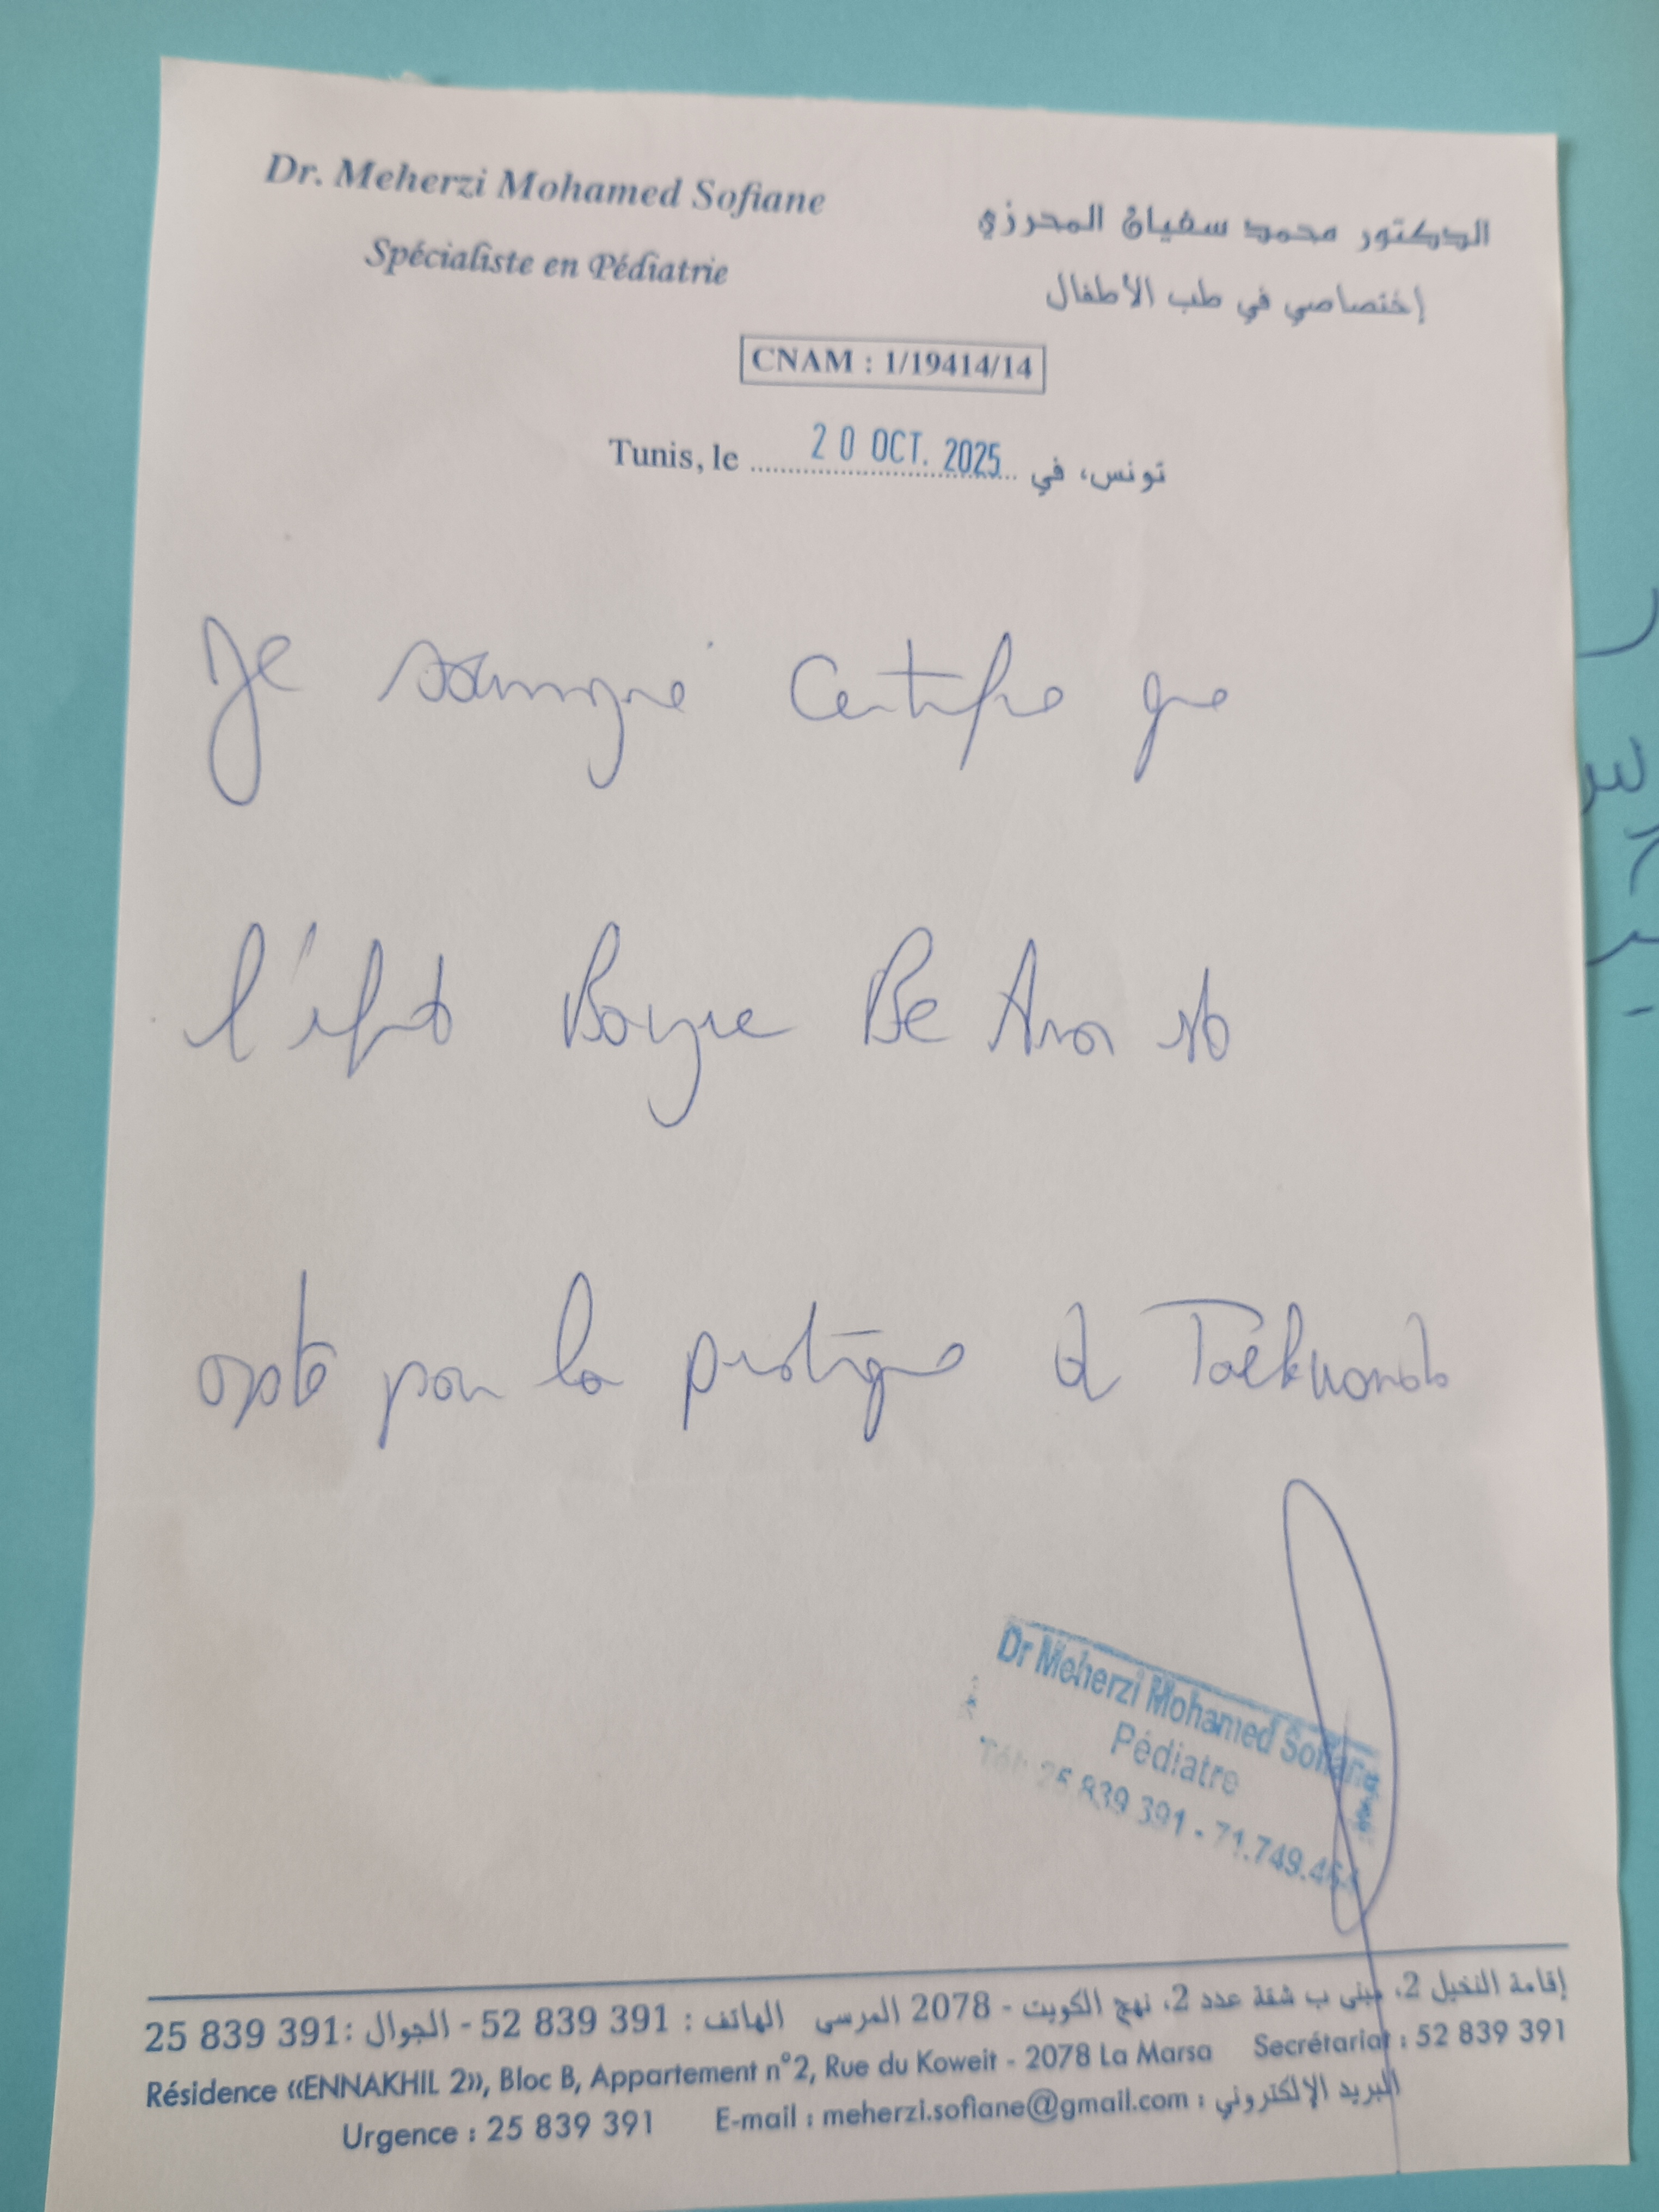 Dr. Meherzi Mohamed Sofiane
Spécialiste en Pédiatrie
الدكتور محمد سفيان المحرزي
إختصاصي في طب الأطفال
CNAM : 1/19414/14
Tunis, le 20 OCT. 2025 تونس، في
Je soussigné certifie que
l'enfant Be
apte pour la pratique d Taekwondo
Dr Meherzi Mohamed Sofiane
Pédiatre
Tél: 25 839 391 - 71.749.464
إقامة النخيل 2، مبنى ب شقة عدد 2، نهج الكويت - 2078 المرسى الهاتف : 52 839 391 - الجوال :25 839 391
Résidence «ENNAKHIL 2», Bloc B, Appartement n°2, Rue du Koweit - 2078 La Marsa Secrétariat : 52 839 391
Urgence : 25 839 391 E-mail : meherzi.sofiane@gmail.com : البريد الإلكتروني